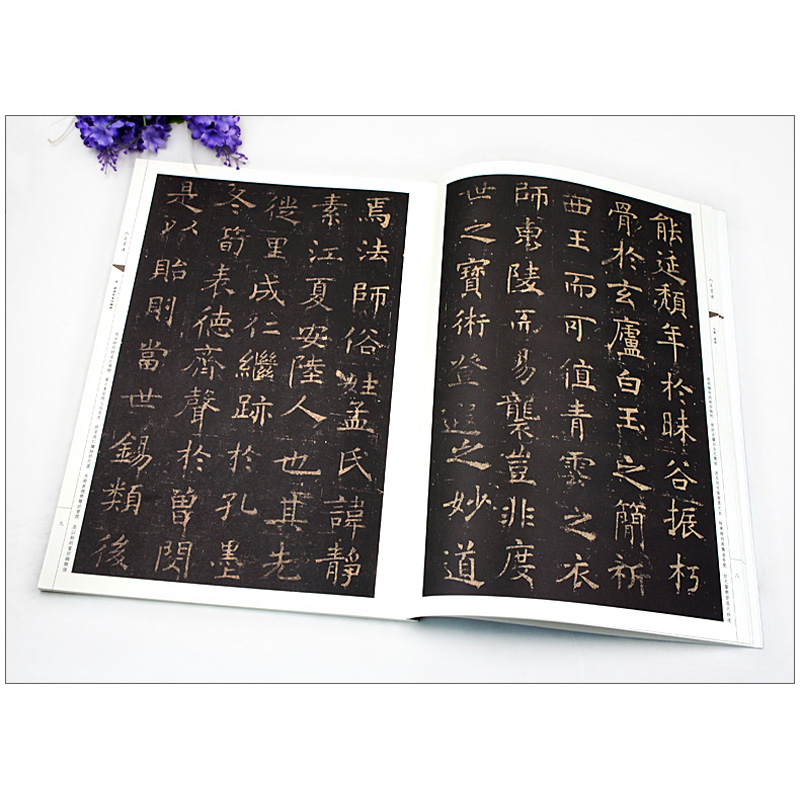 能延頹年於昧谷振朽
骨於玄廬白玉之簡祈
西王而可值青雲之衣
師東陵而易襲豈非度
世之寶術登遐之妙道
焉法師俗姓孟氏諱靜
素江夏安陸人也其先
徙里成仁繼跡於孔墨
冬筍表德齊聲於曾閔
是以貽則當世錫類後
九
八